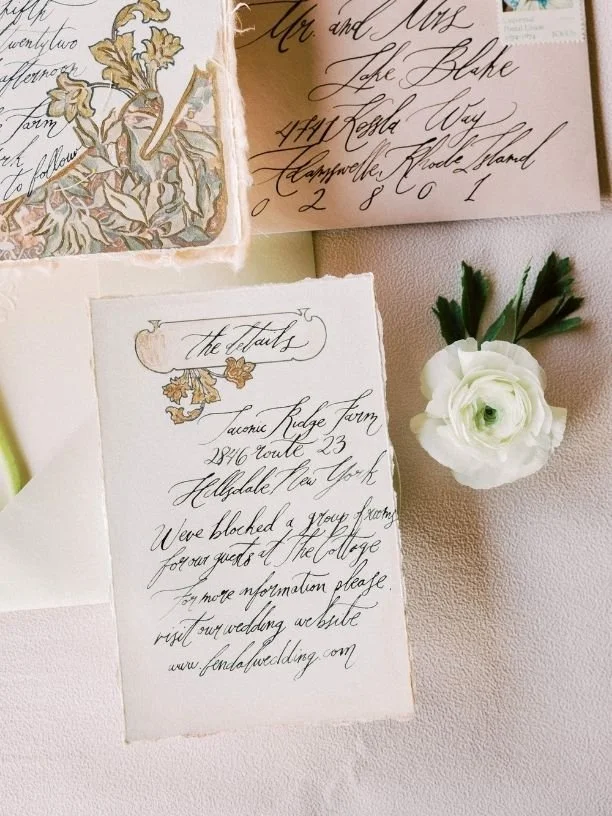 fifth
twentytwo
afternoon
Farm
to follow
Mr. and Mrs
Blake
4741 Way
Rhode Island
0 2 8 0 1
Universal
Postal Union
the details
Taconic Ridge Farm
2846 route 23
Hillsdale, New York
We've blocked a group of rooms
for our guests at The Cottage
For more information please.
visit our wedding website
www.fendalwedding.com